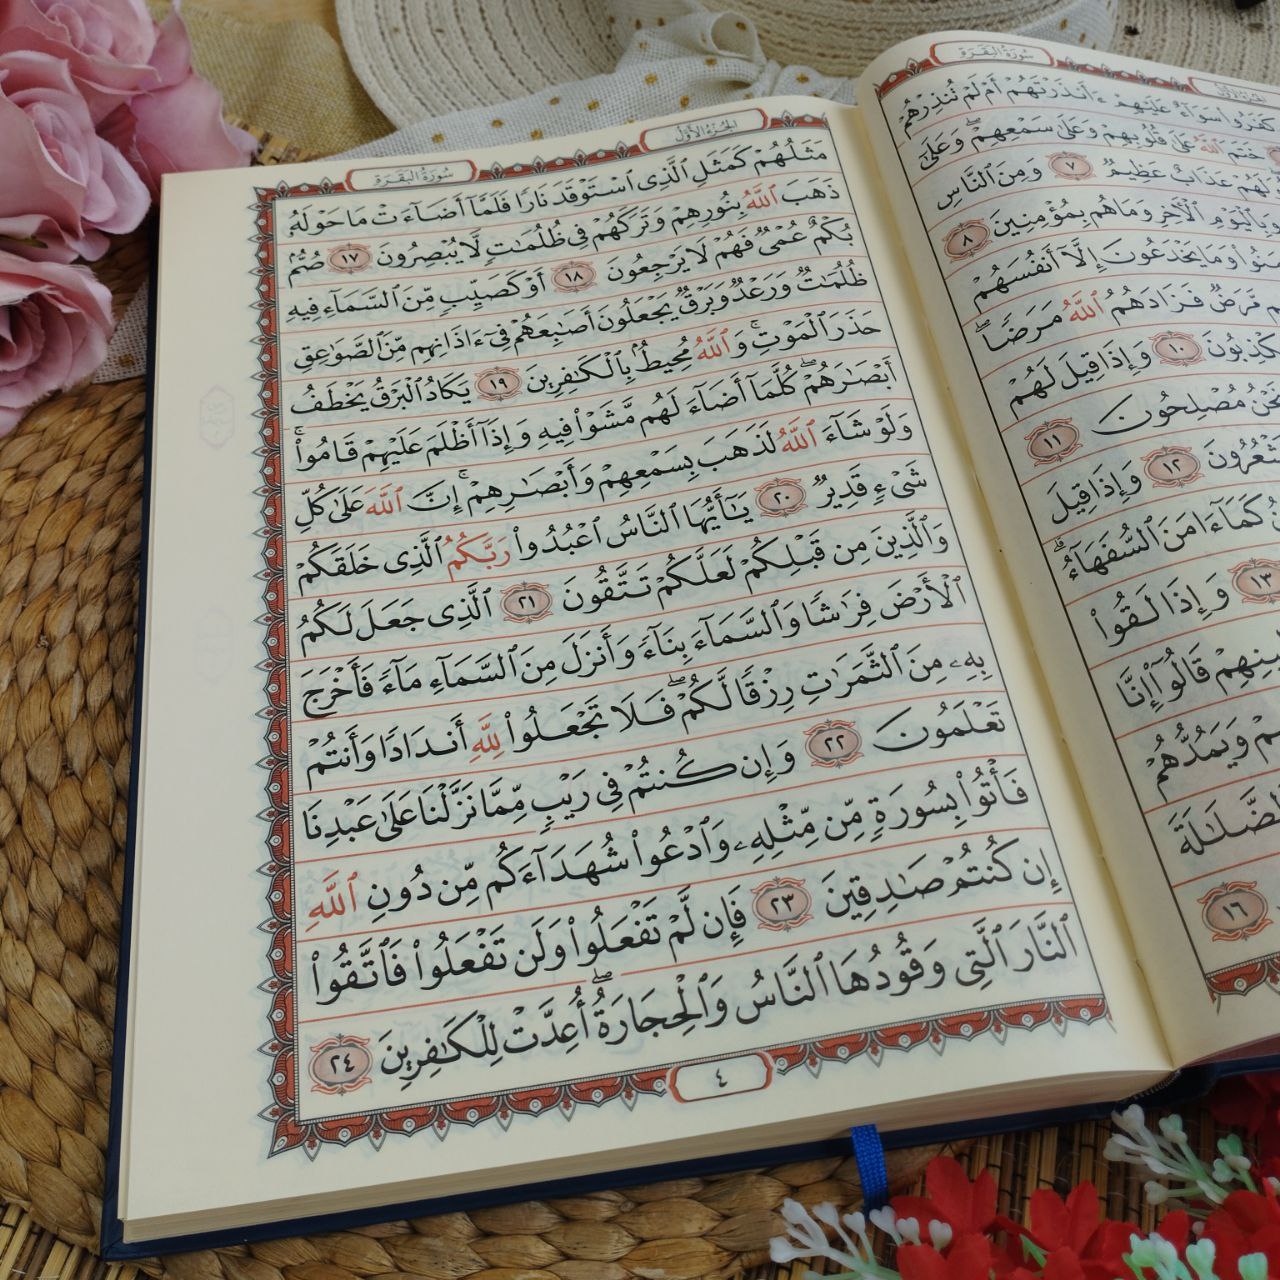 سُورَةُ البَقَرَةِ
الجُزءُ الأَوَّلُ
كَفَرُوا۟ سَوَآءٌ عَلَيْهِمْ ءَأَنذَرْتَهُمْ أَمْ لَمْ تُنذِرْهُمْ
خَتَمَ ٱللَّهُ عَلَىٰ قُلُوبِهِمْ وَعَلَىٰ سَمْعِهِمْ ۖ وَعَلَىٰٓ
لَهُمْ عَذَابٌ عَظِيمٌ ٧ وَمِنَ ٱلنَّاسِ
وَبِٱلْيَوْمِ ٱلْـَٔاخِرِ وَمَا هُم بِمُؤْمِنِينَ ٨
وَمَا يَخْدَعُونَ إِلَّآ أَنفُسَهُمْ
مَّرَضٌ فَزَادَهُمُ ٱللَّهُ مَرَضًا ۖ
١٠ وَإِذَا قِيلَ لَهُمْ
نَحْنُ مُصْلِحُونَ ١١
١٢ وَإِذَا قِيلَ
كَمَآ ءَامَنَ ٱلسُّفَهَآءُ ۗ
١٣ وَإِذَا لَقُوا۟
قَالُوٓا۟ إِنَّا
وَيَمُدُّهُمْ
ٱلضَّلَٰلَةَ
١٦
الجُزءُ الأَوَّلُ
سُورَةُ البَقَرَةِ
مَثَلُهُمْ كَمَثَلِ ٱلَّذِى ٱسْتَوْقَدَ نَارًا فَلَمَّآ أَضَآءَتْ مَا حَوْلَهُۥ
ذَهَبَ ٱللَّهُ بِنُورِهِمْ وَتَرَكَهُمْ فِى ظُلُمَٰتٍ لَّا يُبْصِرُونَ ١٧ صُمٌّۢ
بُكْمٌ عُمْىٌ فَهُمْ لَا يَرْجِعُونَ ١٨ أَوْ كَصَيِّبٍ مِّنَ ٱلسَّمَآءِ فِيهِ
ظُلُمَٰتٌ وَرَعْدٌ وَبَرْقٌ يَجْعَلُونَ أَصَٰبِعَهُمْ فِىٓ ءَاذَانِهِم مِّنَ ٱلصَّوَٰعِقِ
حَذَرَ ٱلْمَوْتِ ۚ وَٱللَّهُ مُحِيطٌۢ بِٱلْكَٰفِرِينَ ١٩ يَكَادُ ٱلْبَرْقُ يَخْطَفُ
أَبْصَٰرَهُمْ ۖ كُلَّمَآ أَضَآءَ لَهُم مَّشَوْا۟ فِيهِ وَإِذَآ أَظْلَمَ عَلَيْهِمْ قَامُوا۟ ۚ
وَلَوْ شَآءَ ٱللَّهُ لَذَهَبَ بِسَمْعِهِمْ وَأَبْصَٰرِهِمْ ۚ إِنَّ ٱللَّهَ عَلَىٰ كُلِّ
شَىْءٍ قَدِيرٌ ٢٠ يَٰٓأَيُّهَا ٱلنَّاسُ ٱعْبُدُوا۟ رَبَّكُمُ ٱلَّذِى خَلَقَكُمْ
وَٱلَّذِينَ مِن قَبْلِكُمْ لَعَلَّكُمْ تَتَّقُونَ ٢١ ٱلَّذِى جَعَلَ لَكُمُ
ٱلْأَرْضَ فِرَٰشًا وَٱلسَّمَآءَ بِنَآءً وَأَنزَلَ مِنَ ٱلسَّمَآءِ مَآءً فَأَخْرَجَ
بِهِۦ مِنَ ٱلثَّمَرَٰتِ رِزْقًا لَّكُمْ ۖ فَلَا تَجْعَلُوا۟ لِلَّهِ أَندَادًا وَأَنتُمْ
تَعْلَمُونَ ٢٢ وَإِن كُنتُمْ فِى رَيْبٍ مِّمَّا نَزَّلْنَا عَلَىٰ عَبْدِنَا
فَأْتُوا۟ بِسُورَةٍ مِّن مِّثْلِهِۦ وَٱدْعُوا۟ شُهَدَآءَكُم مِّن دُونِ ٱللَّهِ
إِن كُنتُمْ صَٰدِقِينَ ٢٣ فَإِن لَّمْ تَفْعَلُوا۟ وَلَن تَفْعَلُوا۟ فَٱتَّقُوا۟
ٱلنَّارَ ٱلَّتِى وَقُودُهَا ٱلنَّاسُ وَٱلْحِجَارَةُ ۖ أُعِدَّتْ لِلْكَٰفِرِينَ ٢٤
٤